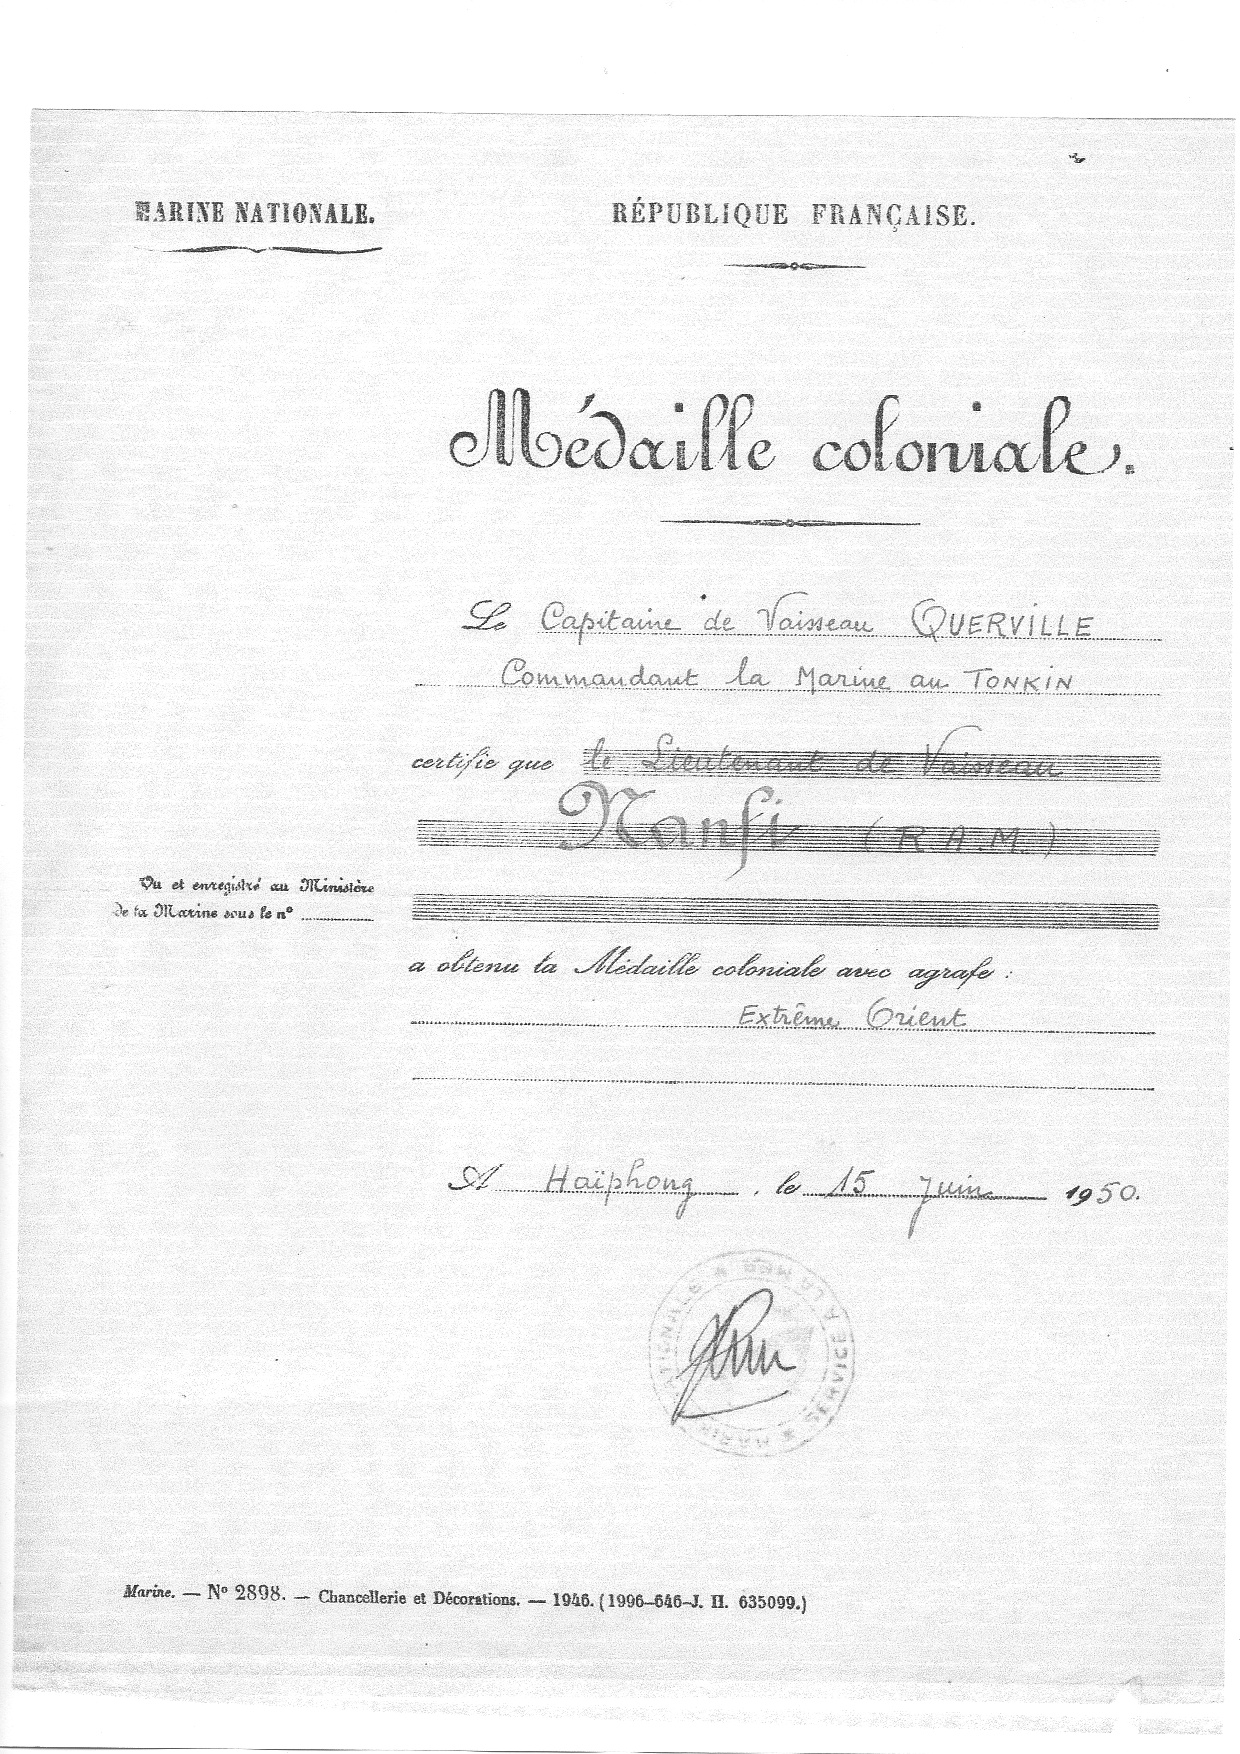 MARINE NATIONALE.
RÉPUBLIQUE FRANÇAISE.
Médaille coloniale.
Le Capitaine de Vaisseau QUERVILLE
Commandant la Marine au TONKIN
certifie que le Lieutenant de Vaisseau
Nanfi (R.A.M.)
Vu et enregistré au Ministère
de la Marine sous le n°
a obtenu la Médaille coloniale avec agrafe :
Extrême Orient
A Haïphong, le 15 Juin 1950.
SERVICE A LA MER
Marine. — N° 2898. — Chancellerie et Décorations. — 1946. (1996-646-J. H. 635099.)